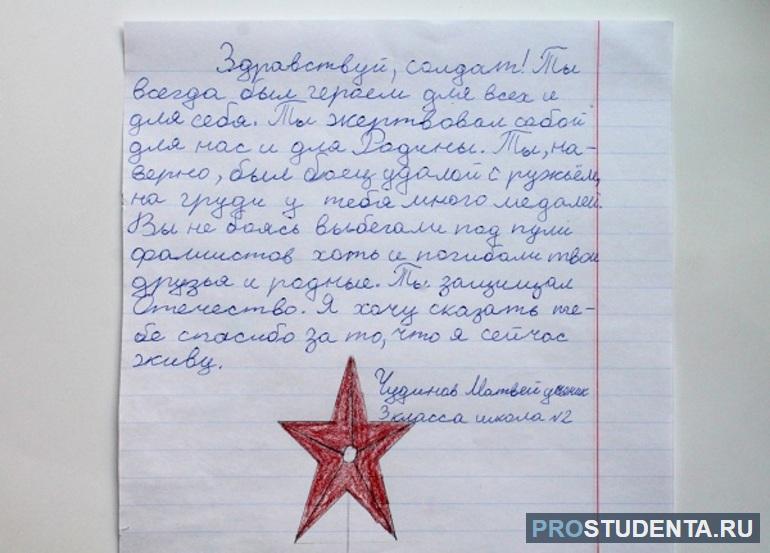 Здравствуй, солдат! Ты
всегда был героем для всех и
для себя. Ты жертвовал собой
для нас и для Родины. Ты, на-
верно, был боец удалой с ружьём,
на груди у тебя много медалей.
Вы не боясь выбегали под пули
фашистов хоть и погибали твои
друзья и родные. Ты защищал
Отечество. Я хочу сказать те-
бе спасибо за то, что я сейчас
живу.
Чудинов Матвей ученик
3 класса школа №2
PROSTUDENTA.RU